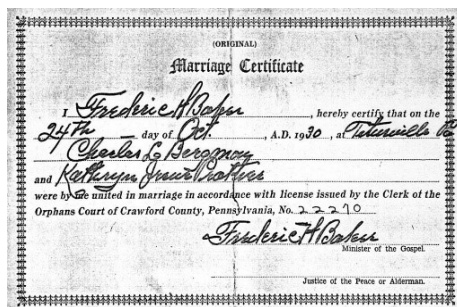 (ORIGINAL)
Marriage Certificate
I Frederic H Baker, hereby certify that on the
24th day of Oct., A.D. 1930, at Titusville Pa
Charles L Bergman
and Kathryn
were by me united in marriage in accordance with license issued by the Clerk of the
Orphans Court of Crawford County, Pennsylvania, No. 22270
Frederic H Baker
Minister of the Gospel.
Justice of the Peace or Alderman.